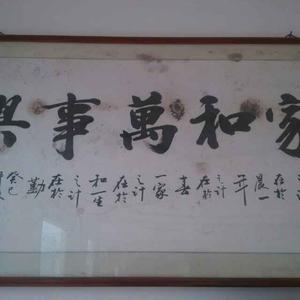 家和萬事興
在於
晨一
年
之計
在於
春
一家
之計
在於
和一生
之計
在於
勤
癸巳